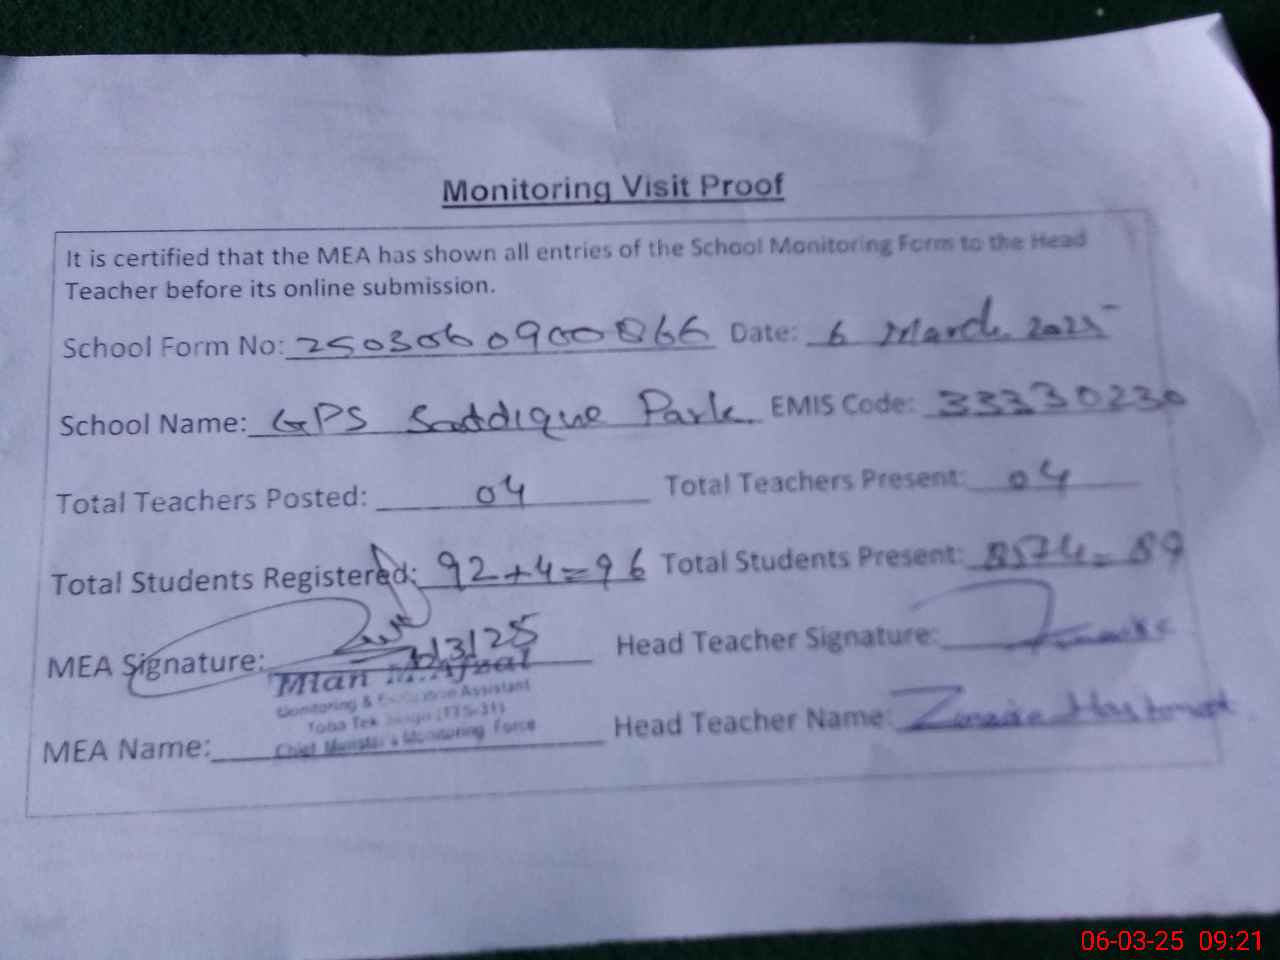 Monitoring Visit Proof
It is certified that the MEA has shown all entries of the School Monitoring Form to the Head
Teacher before its online submission.
School Form No: 2503060900866 Date: 6 March 2025
School Name: GPS Saddique Park EMIS Code: 33330230
Total Teachers Posted: 04 Total Teachers Present: 04
Total Students Registered: 92+4=96 Total Students Present: 85+4=89
MEA Signature: Head Teacher Signature:
Mian M. Afzal
Monitoring & Evaluation Assistant
Toba Tek Singh (TTS-31)
Chief Minister's Monitoring Force
MEA Name: Head Teacher Name:
06-03-25 09:21